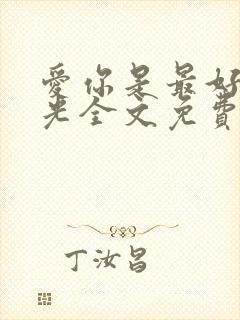 愛你是最好
光全文免費
丁汝昌